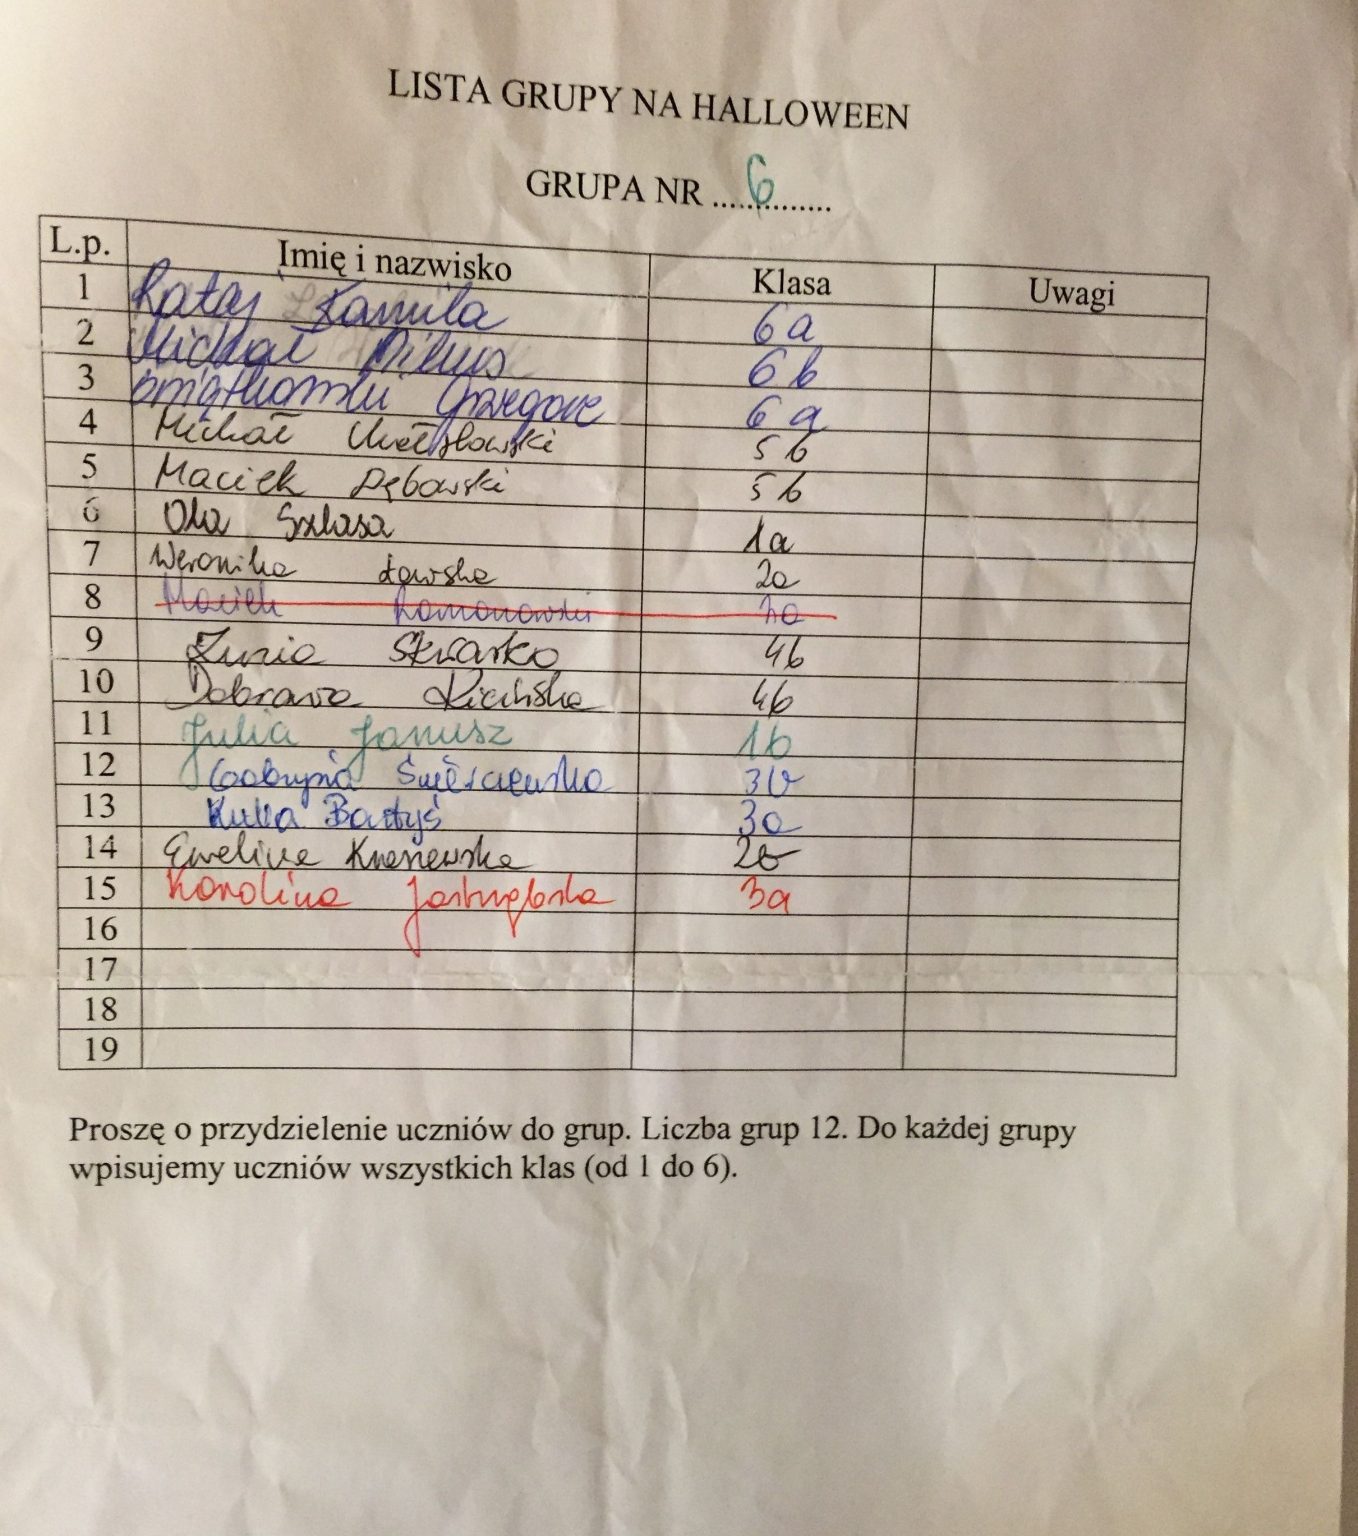 LISTA GRUPY NA HALLOWEEN
GRUPA NR .............. 6
L.p. Imię i nazwisko Klasa Uwagi
1 Rataj Kamila 6a
2 Michał 6b
3 Grzegorz 6a
4 Michał 5b
5 Maciek Dębowski 5b
6 Ola Szlasa 1a
7 Weronika Ławska 2a
8 Maciek Romanowski
9 Zuzia Skwarko 4b
10 Dobrawa Kicińska 4b
11 Julia Janusz 1b
12 Gabrysia 3b
13 Kuba Bartyś 3a
14 Ewelina 2b
15 Karolina Jastrzębska 3a
16
17
18
19
Proszę o przydzielenie uczniów do grup. Liczba grup 12. Do każdej grupy
wpisujemy uczniów wszystkich klas (od 1 do 6).